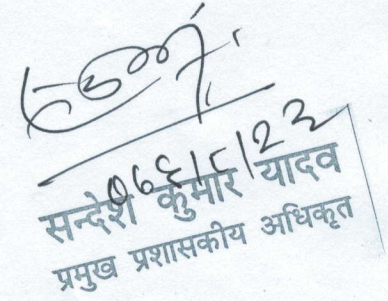 ०७६/८/२३
सन्देश कुमार यादव
प्रमुख प्रशासकीय अधिकृत